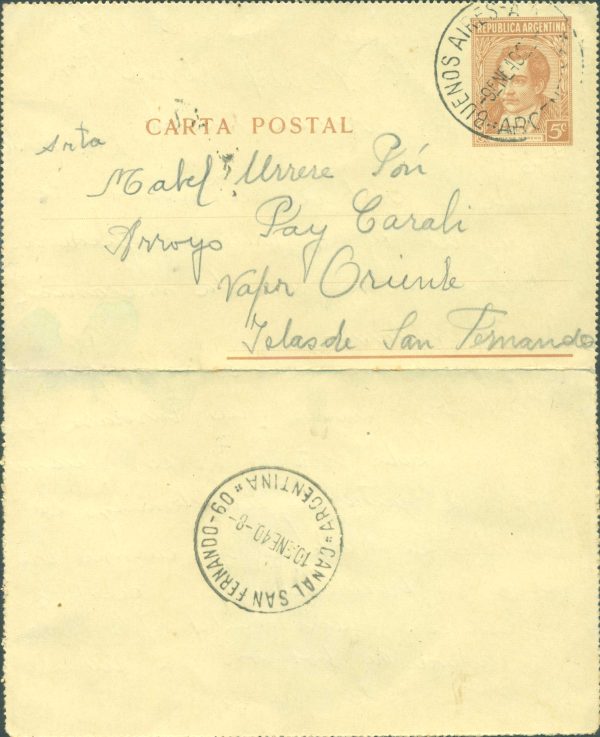 REPUBLICA ARGENTINA
5c
BUENOS AIRES
ARG
CARTA POSTAL
Srta
Mabel Urrere Pón
Arroyo Pay Carabi
Vapor Oriente
Islas de San Fernando
CANAL SAN FERNANDO 09-
ARGENTINA
10 ENE 40-8-